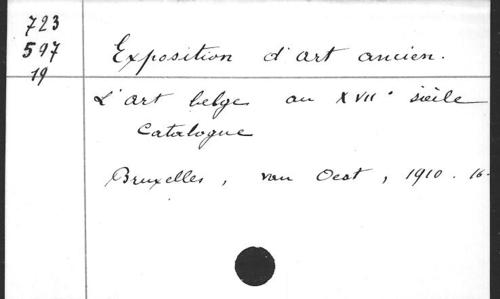 723
597
19
Exposition d'art ancien.
L'art belge au XVII° siècle
Catalogue
Bruxelles, van Oest, 1910. 16-